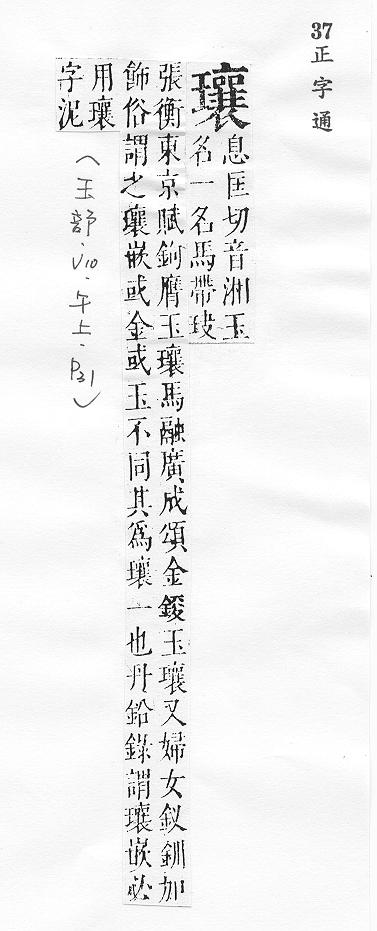 37正字通
瓖
息匡切音湘玉
名一名馬帶玦
張衡東京賦鉤膺玉瓖馬融廣成頌金鋄玉瓖又婦女釵釧加
飾俗謂之瓖嵌或金或玉不同其為瓖一也丹鉛錄謂瓖嵌必
用瓖
字泥
(玉部.V10.午上.P31)